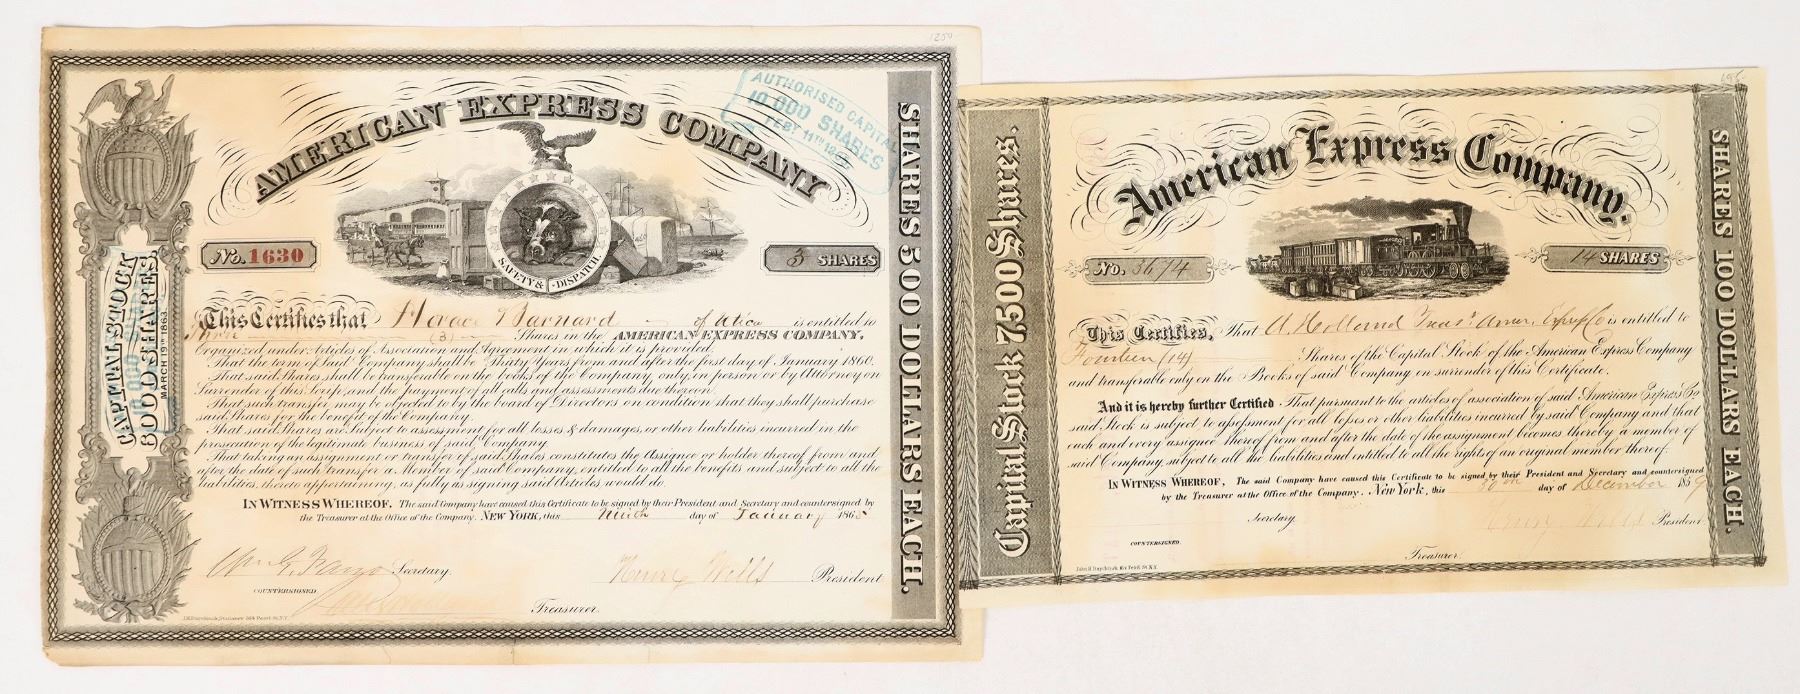 1250
AMERICAN EXPRESS COMPANY
AUTHORISED CAPITAL
10,000 SHARES
FEBY 11TH
SAFETY & DISPATCH.
No. 1630
3 SHARES
CAPITAL STOCK
30000 SHARES
MARCH 19TH 1863.
SHARES 500 DOLLARS EACH.
This Certifies that Horace Barnard of Utica is entitled to
Three (3) Shares in the AMERICAN EXPRESS COMPANY,
Organized under Articles of Association and Agreement in which it is provided,
That the term of Said Company shall be Thirty Years from and after the first day of January 1860.
That said Shares shall be transferable on the books of the Company only, in person or by Attorney on
Surrender of this Scrip, and the payment of all calls and assessments due thereon.
That such transfer may be objected to by the board of Directors on condition that they shall purchase
said Shares for the benefit of the Company.
That said Shares are Subject to assessment for all losses & damages, or other liabilities incurred in the
prosecution of the legitimate business of said Company.
That taking an assignment or transfer of said Shares constitutes the Assignee or holder thereof from and
after the date of such transfer a Member of said Company, entitled to all the benefits and subject to all the
liabilities thereto appertaining, as fully as signing said Articles would do.
IN WITNESS WHEREOF. The said Company have caused this Certificate to be signed by their President and Secretary and countersigned by
the Treasurer at the Office of the Company. NEW YORK, this Ninth day of January 1865
Wm G. Fargo Secretary.
Henry Wells President
COUNTERSIGNED.
Treasurer.
695-
American Express Company.
Capital Stock 7500 Shares.
No. 3674
14 SHARES
SHARES 100 DOLLARS EACH.
This Certifies, That A. Holland Treasr. Amer. Express Co is entitled to
Fourteen (14) Shares of the Capital Stock of the American Express Company
and transferable only on the Books of said Company on surrender of this Certificate.
And it is hereby further Certified That pursuant to the articles of association of said American Express Co
said Stock is subject to assessment for all losses or other liabilities incurred by said Company and that
each and every assignee thereof from and after the date of the assignment becomes thereby a member of
said Company, subject to all the liabilities and entitled to all the rights of an original member thereof.
IN WITNESS WHEREOF, The said Company have caused this Certificate to be signed by their President and Secretary and countersigned
by the Treasurer at the Office of the Company. New York, this 30th day of December 1859
Secretary.
Henry Wells President
COUNTERSIGNED.
Treasurer.